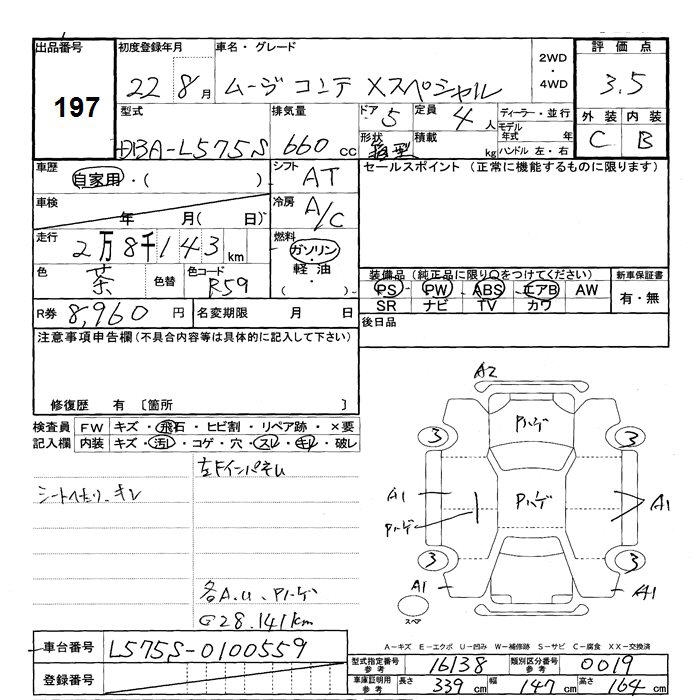 出品番号 初度登録年月 車名・グレード 評価点
197
22 8月 ムーヴ コンテ Xスペシャル 2WD・4WD 3.5
型式 排気量 ドア 5 定員 4人 ディーラー・並行 外装 内装
モデル年式 年
DBA-L575S 660cc 形状 箱型 積載 kg ハンドル 左・右 C B
車歴 自家用・( ) シフト AT セールスポイント (正常に機能するものに限ります)
車検 年 月( 日) 冷房 A/C
走行 2万8千143km 燃料 ガソリン・軽油・( )
色 茶 色替 色コード R59
装備品 (純正品に限り○をつけてください) 新車保証書
PS PW ABS エアB AW 有・無
SR ナビ TV カワ
R券 8,960円 名変期限 月 日 後日品
注意事項申告欄(不具合内容等は具体的に記入して下さい)
修復歴 有 〔箇所 〕
検査員 FW キズ・飛石・ヒビ割・リペア跡・×要
記入欄 内装 キズ・汚レ・コゲ・穴・スレ・キレ・破レ
シートヘタリ、キレ
各A.U.Pハゲ
G28.141km
A2
Pハゲ
3 3
A1 Pハゲ A1
Pハゲ
3 3
A1 A1
スペア
A-キズ E-エクボ U-凹み W-補修跡 S-サビ C-腐食 XX-交換済
車台番号 L575S-0100559
登録番号
型式指定番号 参考 16138 類別区分番号 参考 0019
車庫証明用 参考 長さ 339cm 幅 147cm 高さ 164cm